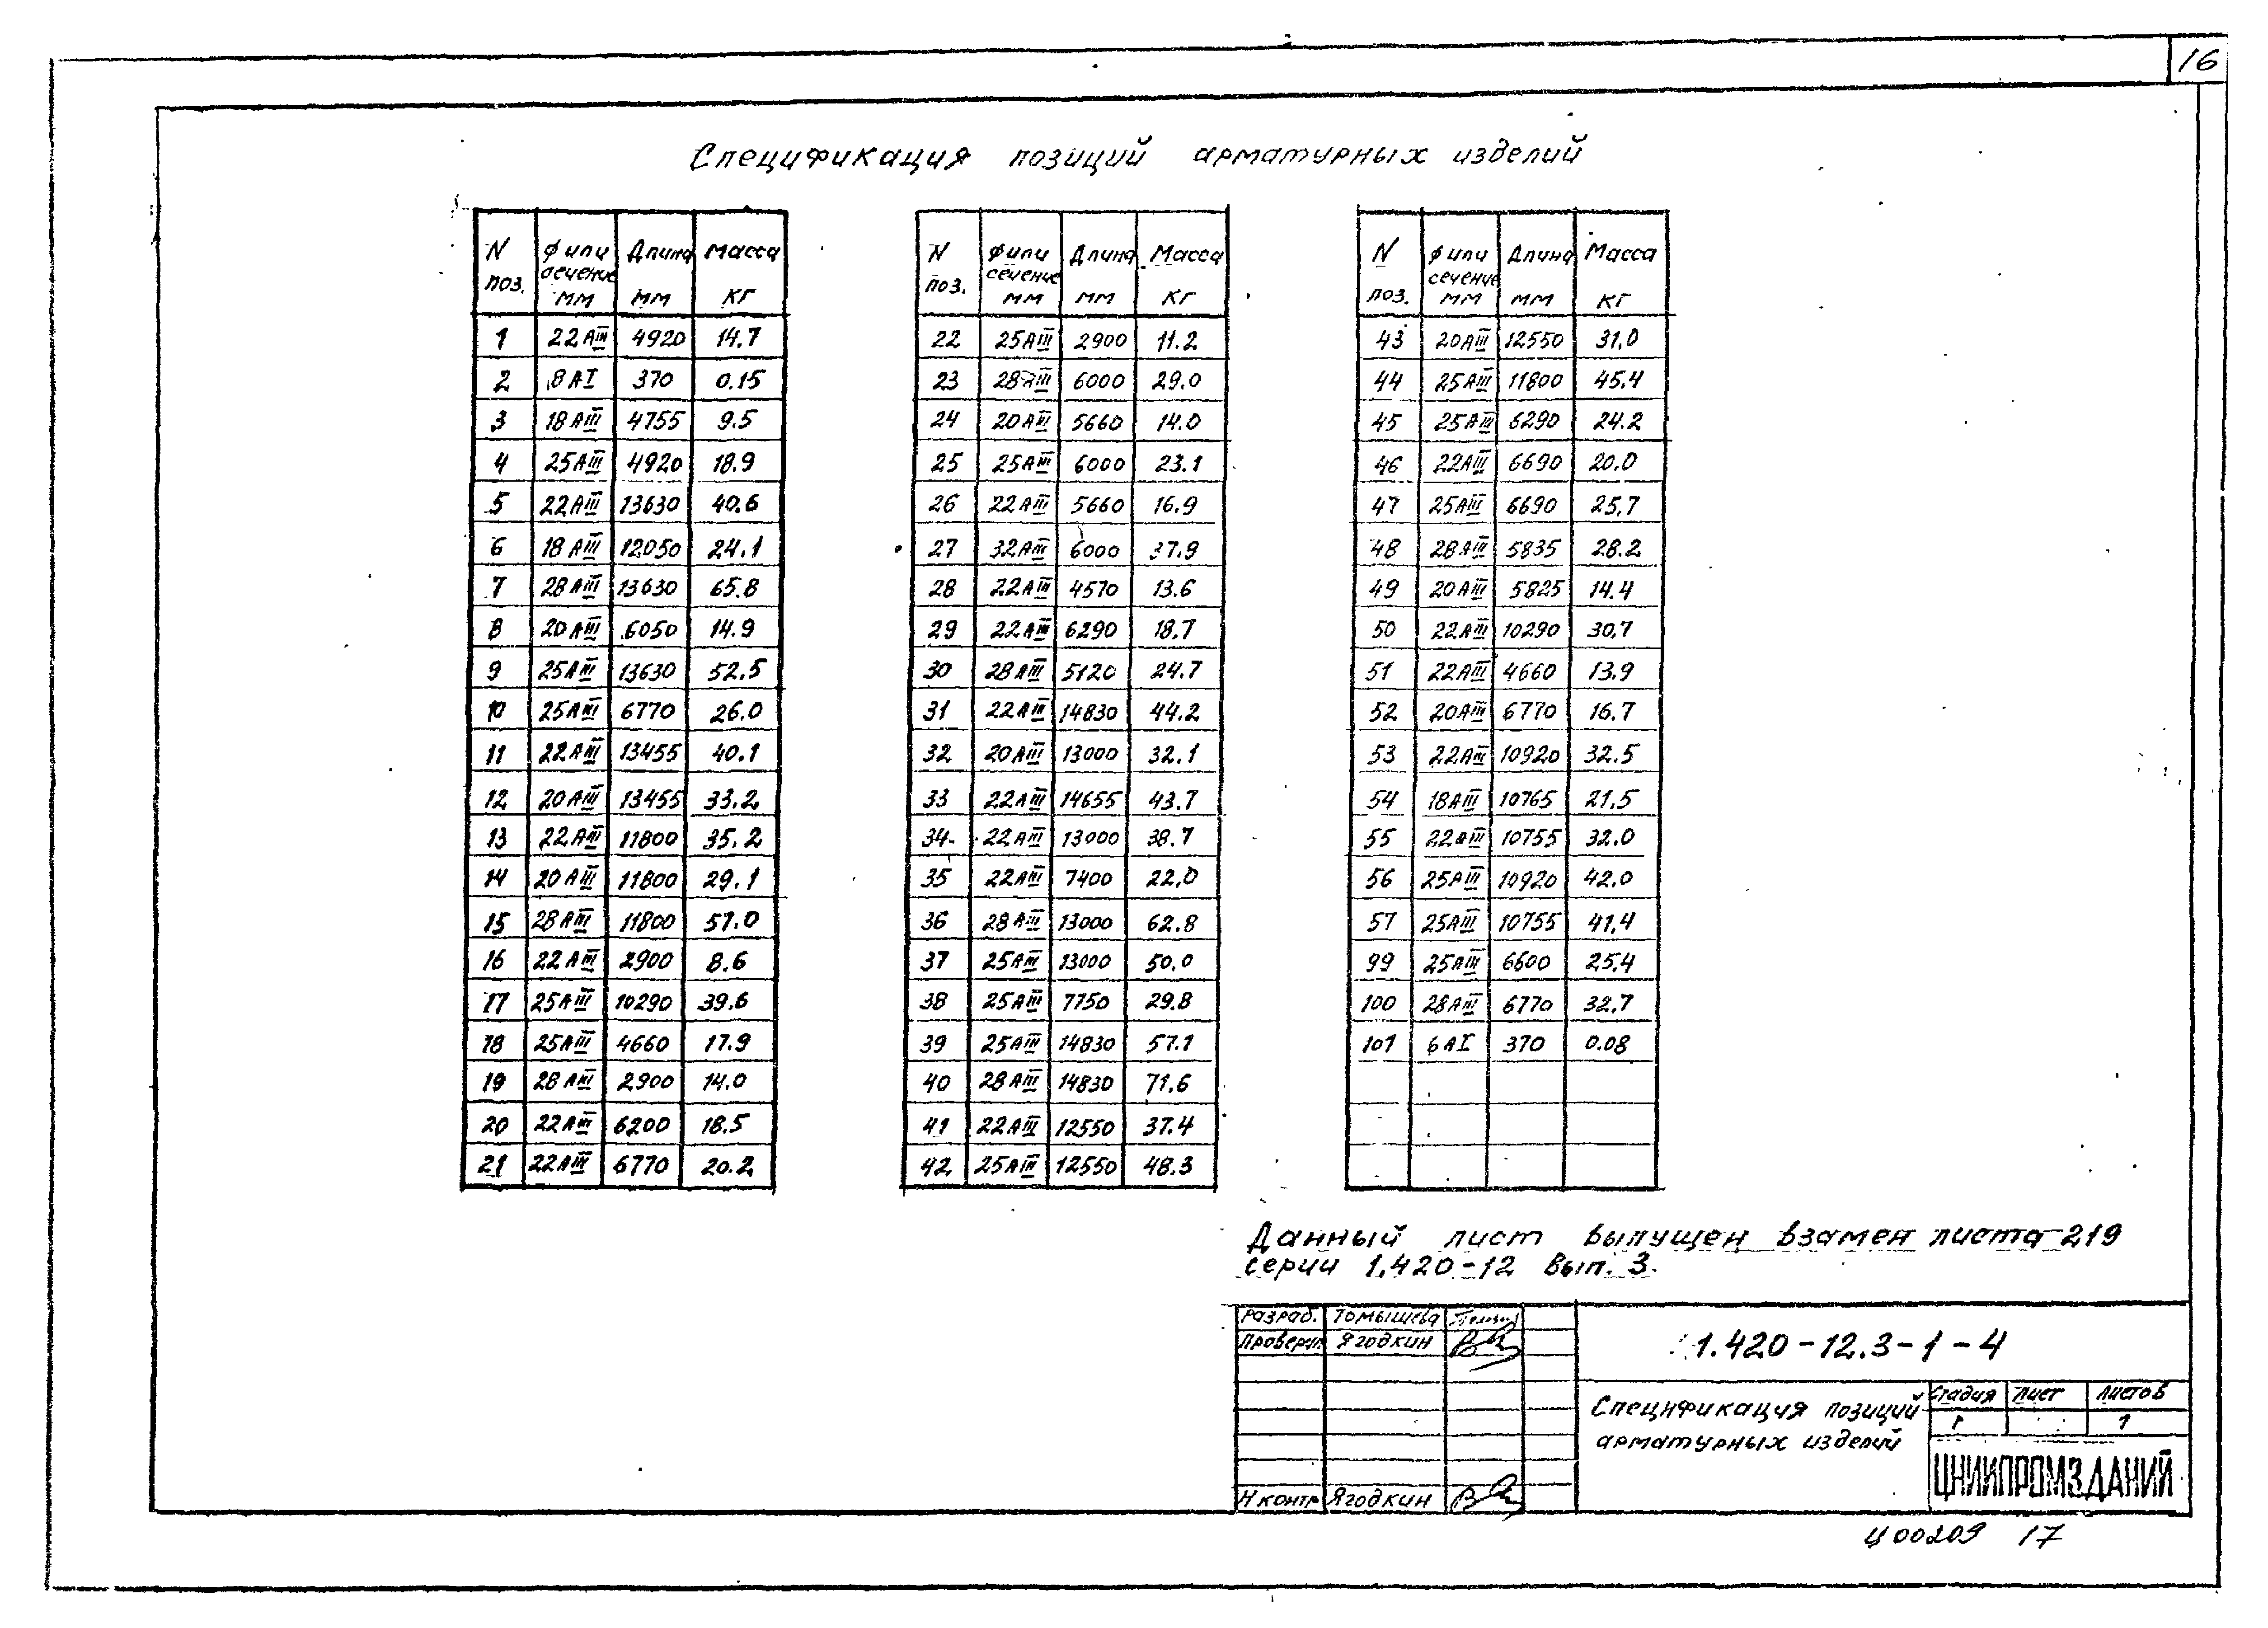 16
Спецификация позиций арматурных изделий
N поз. ф или сечение мм Длина мм Масса кг
1 22АIII 4920 14.7
2 8АI 370 0.15
3 18АIII 4755 9.5
4 25АIII 4920 18.9
5 22АIII 13630 40.6
6 18АIII 12050 24.1
7 28АIII 13630 65.8
8 20АIII 6050 14.9
9 25АIII 13630 52.5
10 25АIII 6770 26.0
11 22АIII 13455 40.1
12 20АIII 13455 33.2
13 22АIII 11800 35.2
14 20АIII 11800 29.1
15 28АIII 11800 57.0
16 22АIII 2900 8.6
17 25АIII 10290 39.6
18 25АIII 4660 17.9
19 28АIII 2900 14.0
20 22АIII 6200 18.5
21 22АIII 6770 20.2
N поз. ф или сечение мм Длина мм Масса кг
22 25АIII 2900 11.2
23 28АIII 6000 29.0
24 20АIII 5660 14.0
25 25АIII 6000 23.1
26 22АIII 5660 16.9
27 32АIII 6000 37.9
28 22АIII 4570 13.6
29 22АIII 6290 18.7
30 28АIII 5120 24.7
31 22АIII 14830 44.2
32 20АIII 13000 32.1
33 22АIII 14655 43.7
34 22АIII 13000 38.7
35 22АIII 7400 22.0
36 28АIII 13000 62.8
37 25АIII 13000 50.0
38 25АIII 7750 29.8
39 25АIII 14830 57.1
40 28АIII 14830 71.6
41 22АIII 12550 37.4
42 25АIII 12550 48.3
N поз. ф или сечение мм Длина мм Масса кг
43 20АIII 12550 31.0
44 25АIII 11800 45.4
45 25АIII 6290 24.2
46 22АIII 6690 20.0
47 25АIII 6690 25.7
48 28АIII 5835 28.2
49 20АIII 5825 14.4
50 22АIII 10290 30.7
51 22АIII 4660 13.9
52 20АIII 6770 16.7
53 22АIII 10920 32.5
54 18АIII 10765 21.5
55 22АIII 10755 32.0
56 25АIII 10920 42.0
57 25АIII 10755 41.4
99 25АIII 6600 25.4
100 28АIII 6770 32.7
101 6АI 370 0.08
Данный лист выпущен взамен листа 219
серии 1.420-12 Вып. 3.
Разраб. Томышева
Проверил Ягодкин
Н контр Ягодкин
1.420-12.3-1-4
Спецификация позиций
арматурных изделий
Стадия Лист Листов
Р 1
ЦНИИПРОМЗДАНИЙ
Ц00209 17